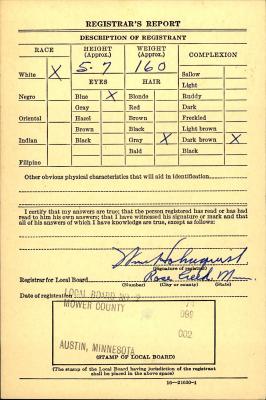 REGISTRAR'S REPORT
DESCRIPTION OF REGISTRANT
RACE HEIGHT (Approx.) WEIGHT (Approx.) COMPLEXION
White X 5-7 160 Sallow
EYES HAIR Light
Negro Blue X Blonde Ruddy
Gray Red Dark
Oriental Hazel Brown Freckled
Brown Black Light brown
Indian Black Gray X Dark brown X
Bald Black
Filipino
Other obvious physical characteristics that will aid in identification
I certify that my answers are true; that the person registered has read or has had
read to him his own answers; that I have witnessed his signature or mark and that
all of his answers of which I have knowledge are true, except as follows:
Wm
(Signature of registrar)
Registrar for Local Board
(Number) (City or county) (State)
Date of registration
LOCAL BOARD NO.
MOWER COUNTY
099
002
AUSTIN, MINNESOTA
(STAMP OF LOCAL BOARD)
(The stamp of the Local Board having jurisdiction of the registrant
shall be placed in the above space)
16—21630-1